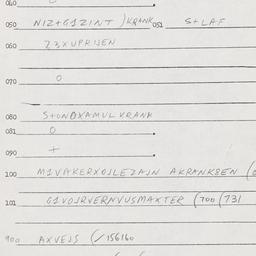 040
050 NIZ+G1ZINT )KRANK 051 S+LAF
060 Z3XUPRIJEN
070 O
080 S+ONDXAMULKRANK
081 O
090 +
100 M1VAKERXOJLEZAJN AKRANKSEN (
101 G1VOJRVERNVUSMAXTER (700 (731
900 AXVEJS (/156160